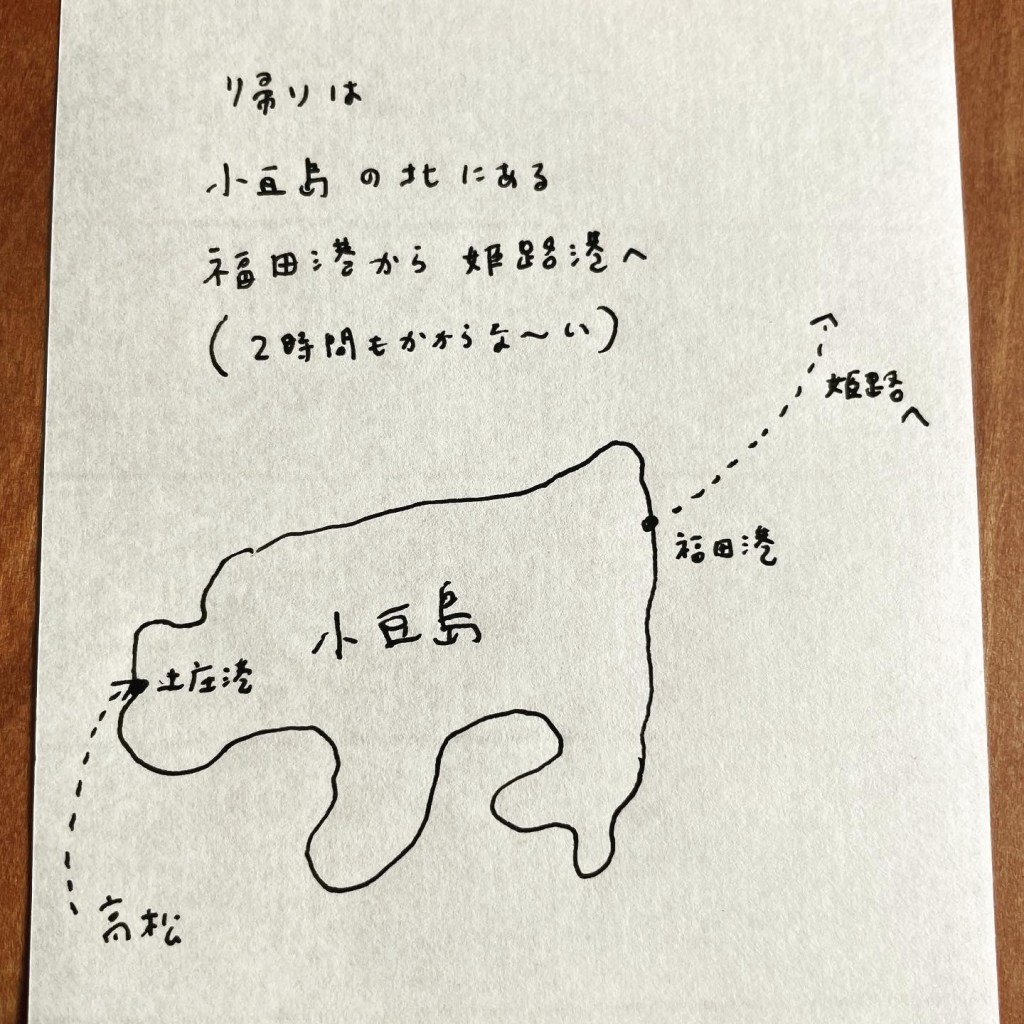 帰りは
小豆島の北にある
福田港から 姫路港へ
(2時間もかからな〜い)
姫路へ
福田港
小豆島
土庄港
高松